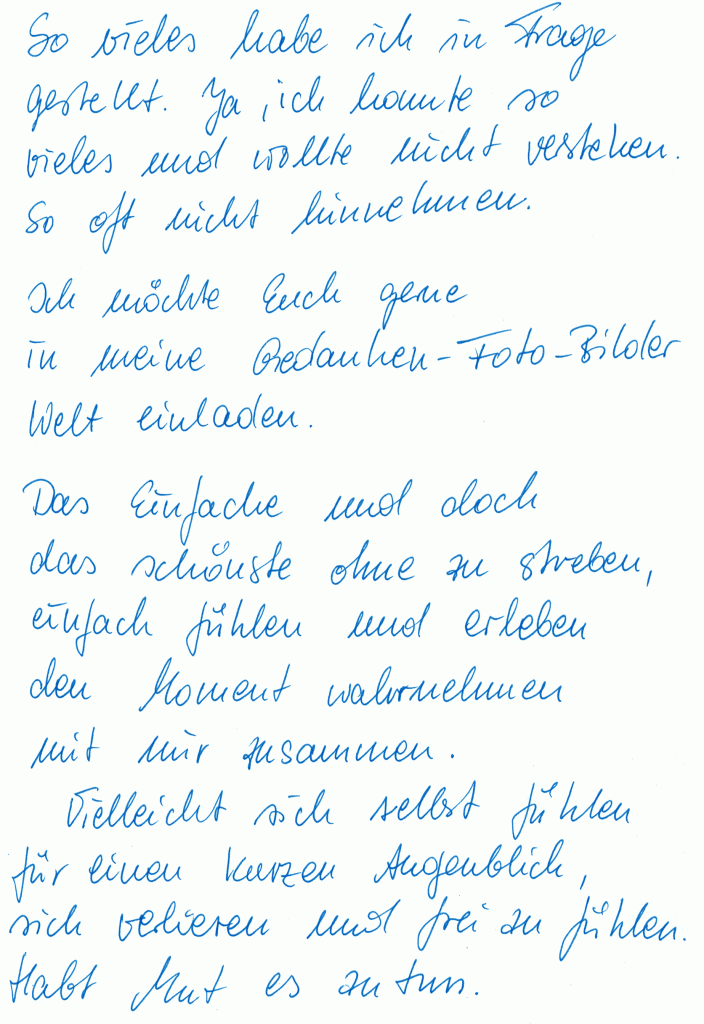 So vieles habe ich in Frage
gestellt. Ja, ich konnte so
vieles und wollte nicht verstehen.
So oft nicht hinnehmen.
Ich möchte Euch gerne
in meine Gedanken-Foto-Bilder
Welt einladen.
Das Einfache und doch
das schönste ohne zu streben,
einfach fühlen und erleben
den Moment wahrnehmen
mit mir zusammen.
Vielleicht sich selbst fühlen
für einen kurzen Augenblick,
sich verlieren und frei zu fühlen.
Habt Mut es zu tun.